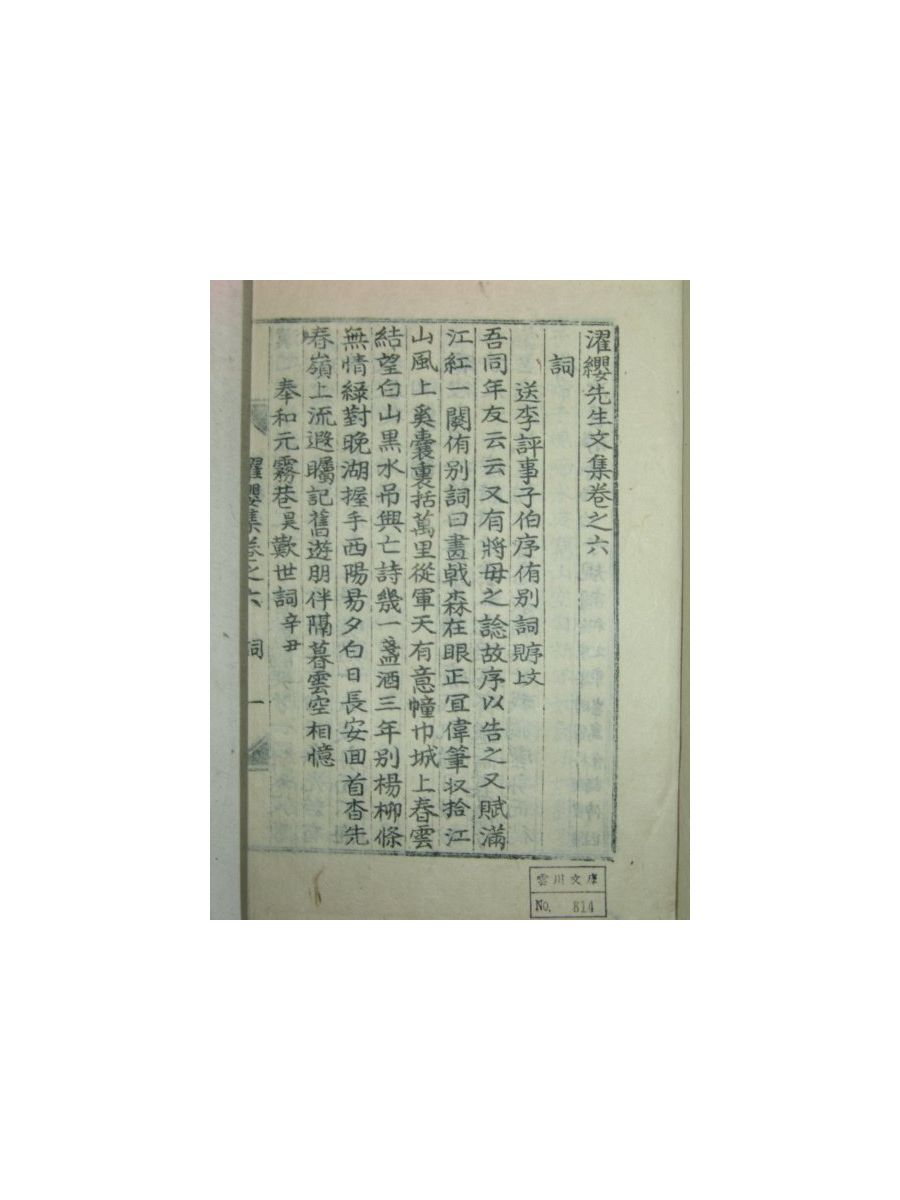 濯纓先生文集卷之六
詞
送李評事子伯序侑別詞
吾同年友云云又有將母之諗故序以告之又賦滿
江紅一闋侑別詞曰畫戟森在眼正宜偉筆收拾江
山風上奚囊裏括萬里從軍天有意幢巾城上春雲
結望白山黑水吊興亡詩幾一盞酒三年別楊柳條
無情綠對晚湖握手西陽易夕白日長安回首杳先
春嶺上流遐矚記舊遊朋伴隔暮雲空相憶
奉和元霧巷昊歎世詞辛丑
濯纓集卷之六 詞 一
雲川文庫
No. 814